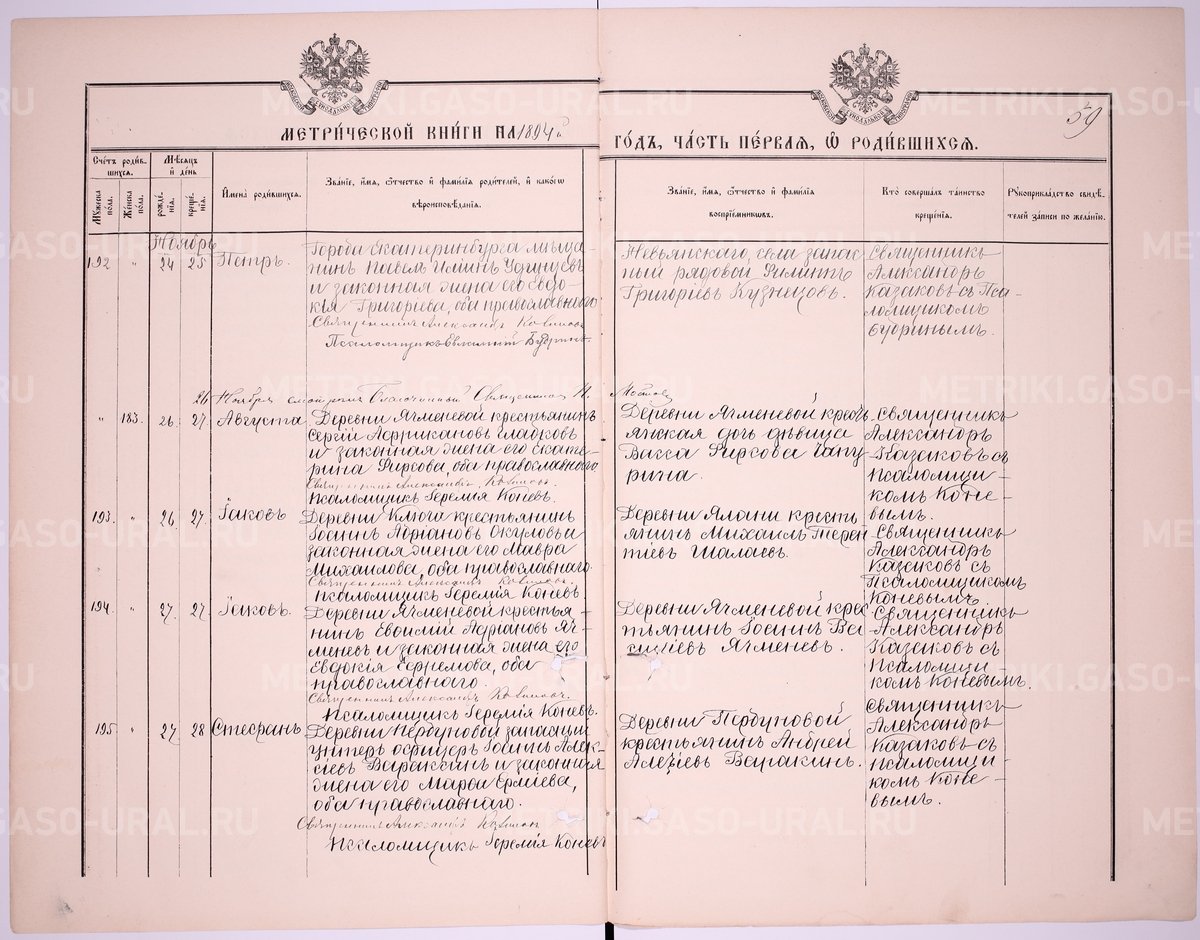 59
МЕТРИ́ЧЕСКОЙ КНИ́ГИ НА 1894 й ГО́ДЪ, ЧА́СТЬ ПЕ́РВАЯ, Ѡ РОДИ́ВШИХСЯ.
Сче́тъ роди́в-
шихся.
Му́жеска по́ла.
Же́нска по́ла.
Мѣ́сяцъ
и де́нь
рожде́-
нія.
креще́-
нія.
И́мена роди́вшихся.
Зва́ніе, и́мя, ѻ́тчество и фами́лія роди́телей, и како́гѡ
вѣроисповѣ́данія.
Зва́ніе, и́мя, ѻ́тчество и фами́лія
воспріе́мникѡвъ.
Кто́ соверша́лъ та́инство
креще́нія.
Рꙋкоприкла́дство свидѣ́-
телей за́писи по жела́нію.
Ноябрь
192 " 24 25 Петръ.
Города Екатеринбурга мѣща-
нинъ Павелъ Удинцевъ
и законная жена его Евдо-
кія Григорьева, оба православнаго
Священникъ Александръ Казаковъ
Псаломщикъ Бубринъ
Невьянскаго села запас
ный рядовой Филиппъ
Григоріевъ Кузнецовъ.
Священникъ
Александръ
Казаковъ съ Пса-
ломщикомъ
Бубринымъ.
26 Ноября смотрѣлъ Благочинный Священникъ
" 183. 26. 27. Августа
Деревни Ячменевой крестьянинъ
Сергій Африкановъ Гладковъ
и законная жена его Екате-
рина Фирсова, оба православнаго
Священникъ Александръ Казаковъ.
Псаломщикъ Іеремія Коневъ.
Деревни Ячменевой кресть
янская дочь дѣвица
Васса Фирсова
рина.
Священникъ
Александръ
Казаковъ съ
Псаломщи-
комъ Коне-
вымъ.
193. " 26. 27. Іаковъ
Деревни Ключа крестьянинъ
Іоаннъ Адріановъ Окуловъ и
законная жена его Мавра
Михайлова, оба православнаго.
Священникъ Александръ Казаковъ.
Псаломщикъ Іеремія Коневъ.
Деревни Ялани кресть
янинъ Михаилъ Терен
тіевъ Шалаевъ.
Священникъ
Александръ
Казаковъ съ
Псаломщикомъ
Коневымъ.
194. " 27. 27. Іаковъ.
Деревни Ячменевой крестья-
нинъ Евѳимій Адріановъ Яч-
меневъ и законная жена его
Евдокія Ефремова, оба
православнаго.
Священникъ Александръ Казаковъ.
Псаломщикъ Іеремія Коневъ.
Деревни Ячменевой крес
тьянинъ Іоаннъ Ва
силіевъ Ячменевъ.
Священникъ
Александръ
Казаковъ съ
Псаломщи
комъ Коневымъ.
195 " 27 28 Стефанъ
Деревни Пербуновой запасный
унтеръ офицеръ Іоаннъ Алек-
сіевъ Вараксинъ и законная
жена его Марья Ерміева,
оба православнаго.
Священникъ Александръ Казаковъ
Псаломщикъ Іеремія Коневъ
Деревни Пербуновой
крестьянинъ Андрей
Алексіевъ Варакинъ.
Священникъ
Александръ
Казаковъ съ
Псаломщи-
комъ Коне-
вымъ.
METRIKI.GASO-URAL.RU